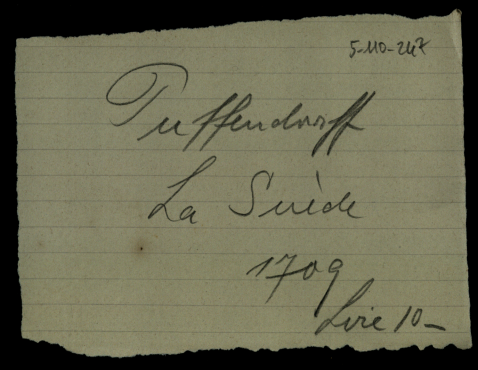 5-110-247
Puffendorff
La Suède
1709
Lire 10-